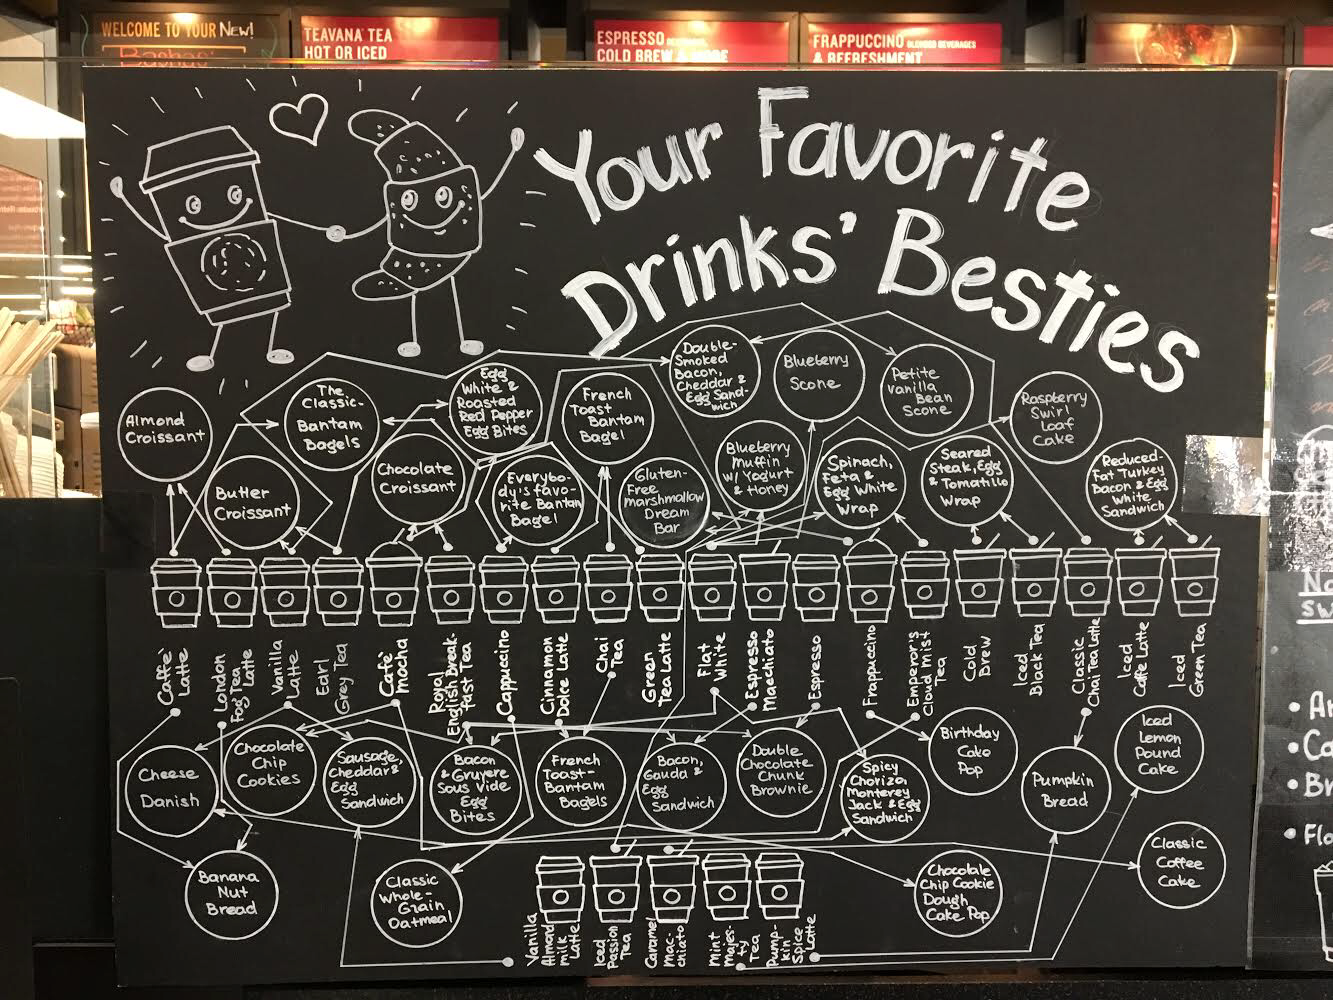 WELCOME TO YOUR New!
Bashas'
TEAVANA TEA
HOT OR ICED
ESPRESSO BEVERAGES
COLD BREW & MORE
FRAPPUCCINO BLENDED BEVERAGES
& REFRESHMENT
Your Favorite
Drinks' Besties
Almond
Croissant
The
Classic-
Bantam
Bagels
Egg
White &
Roasted
Red Pepper
Egg Bites
French
Toast
Bantam
Bagel
Double-
Smoked
Bacon,
Cheddar &
Egg Sand-
wich
Blueberry
Scone
Petite
Vanilla
Bean
Scone
Raspberry
Swirl
Loaf
Cake
Butter
Croissant
Chocolate
Croissant
Everybo-
dy's favo-
rite Bantam
Bagel
Gluten-
Free
Marshmallow
Dream
Bar
Blueberry
Muffin
w/ Yogurt
& Honey
Spinach,
Feta &
Egg White
Wrap
Seared
Steak, Egg
& Tomatillo
Wrap
Reduced-
Fat Turkey
Bacon & Egg
White
Sandwich
Caffè
Latte
London
Fog Tea
Latte
Vanilla
Latte
Earl
Grey Tea
Cafè
Mocha
Royal
English Break-
fast Tea
Cappuccino
Cinnamon
Dolce Latte
Chai
Tea
Green
Tea Latte
Flat
White
Espresso
Macchiato
Espresso
Frappuccino
Emperor's
Cloud Mist
Tea
Cold
Brew
Iced
Black Tea
Classic
Chai Tea Latte
Iced
Caffe Latte
Iced
Green Tea
Cheese
Danish
Chocolate
Chip
Cookies
Sausage,
Cheddar &
Egg
Sandwich
Bacon
& Gruyere
Sous Vide
Egg
Bites
French
Toast-
Bantam
Bagels
Bacon,
Gauda &
Egg
Sandwich
Double
Chocolate
Chunk
Brownie
Spicy
Chorizo,
Monterey
Jack & Egg
Sandwich
Birthday
Cake
Pop
Pumpkin
Bread
Iced
Lemon
Pound
Cake
Banana
Nut
Bread
Classic
Whole-
Grain
Oatmeal
Chocolate
Chip Cookie
Dough
Cake Pop
Classic
Coffee
Cake
Vanilla
Almond
milk
Latte
Iced
Passion
Tea
Caramel
Mac-
chiato
Mint
Majes-
ty
Tea
Pump-
kin
Spice
Latte